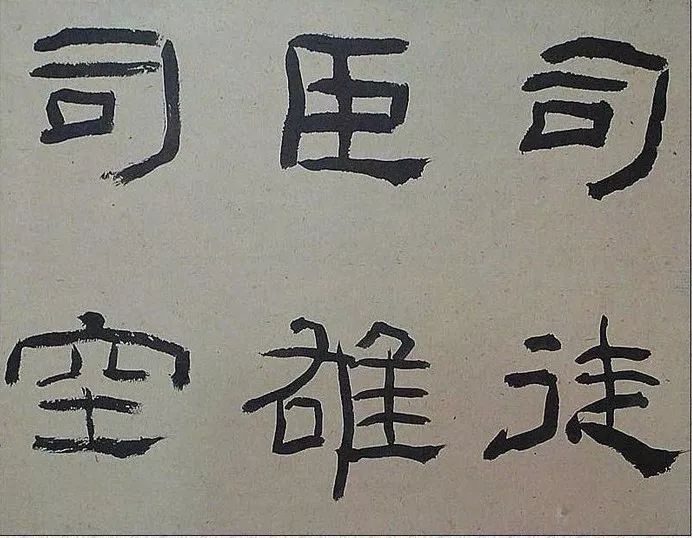 司徒
臣雄
司空